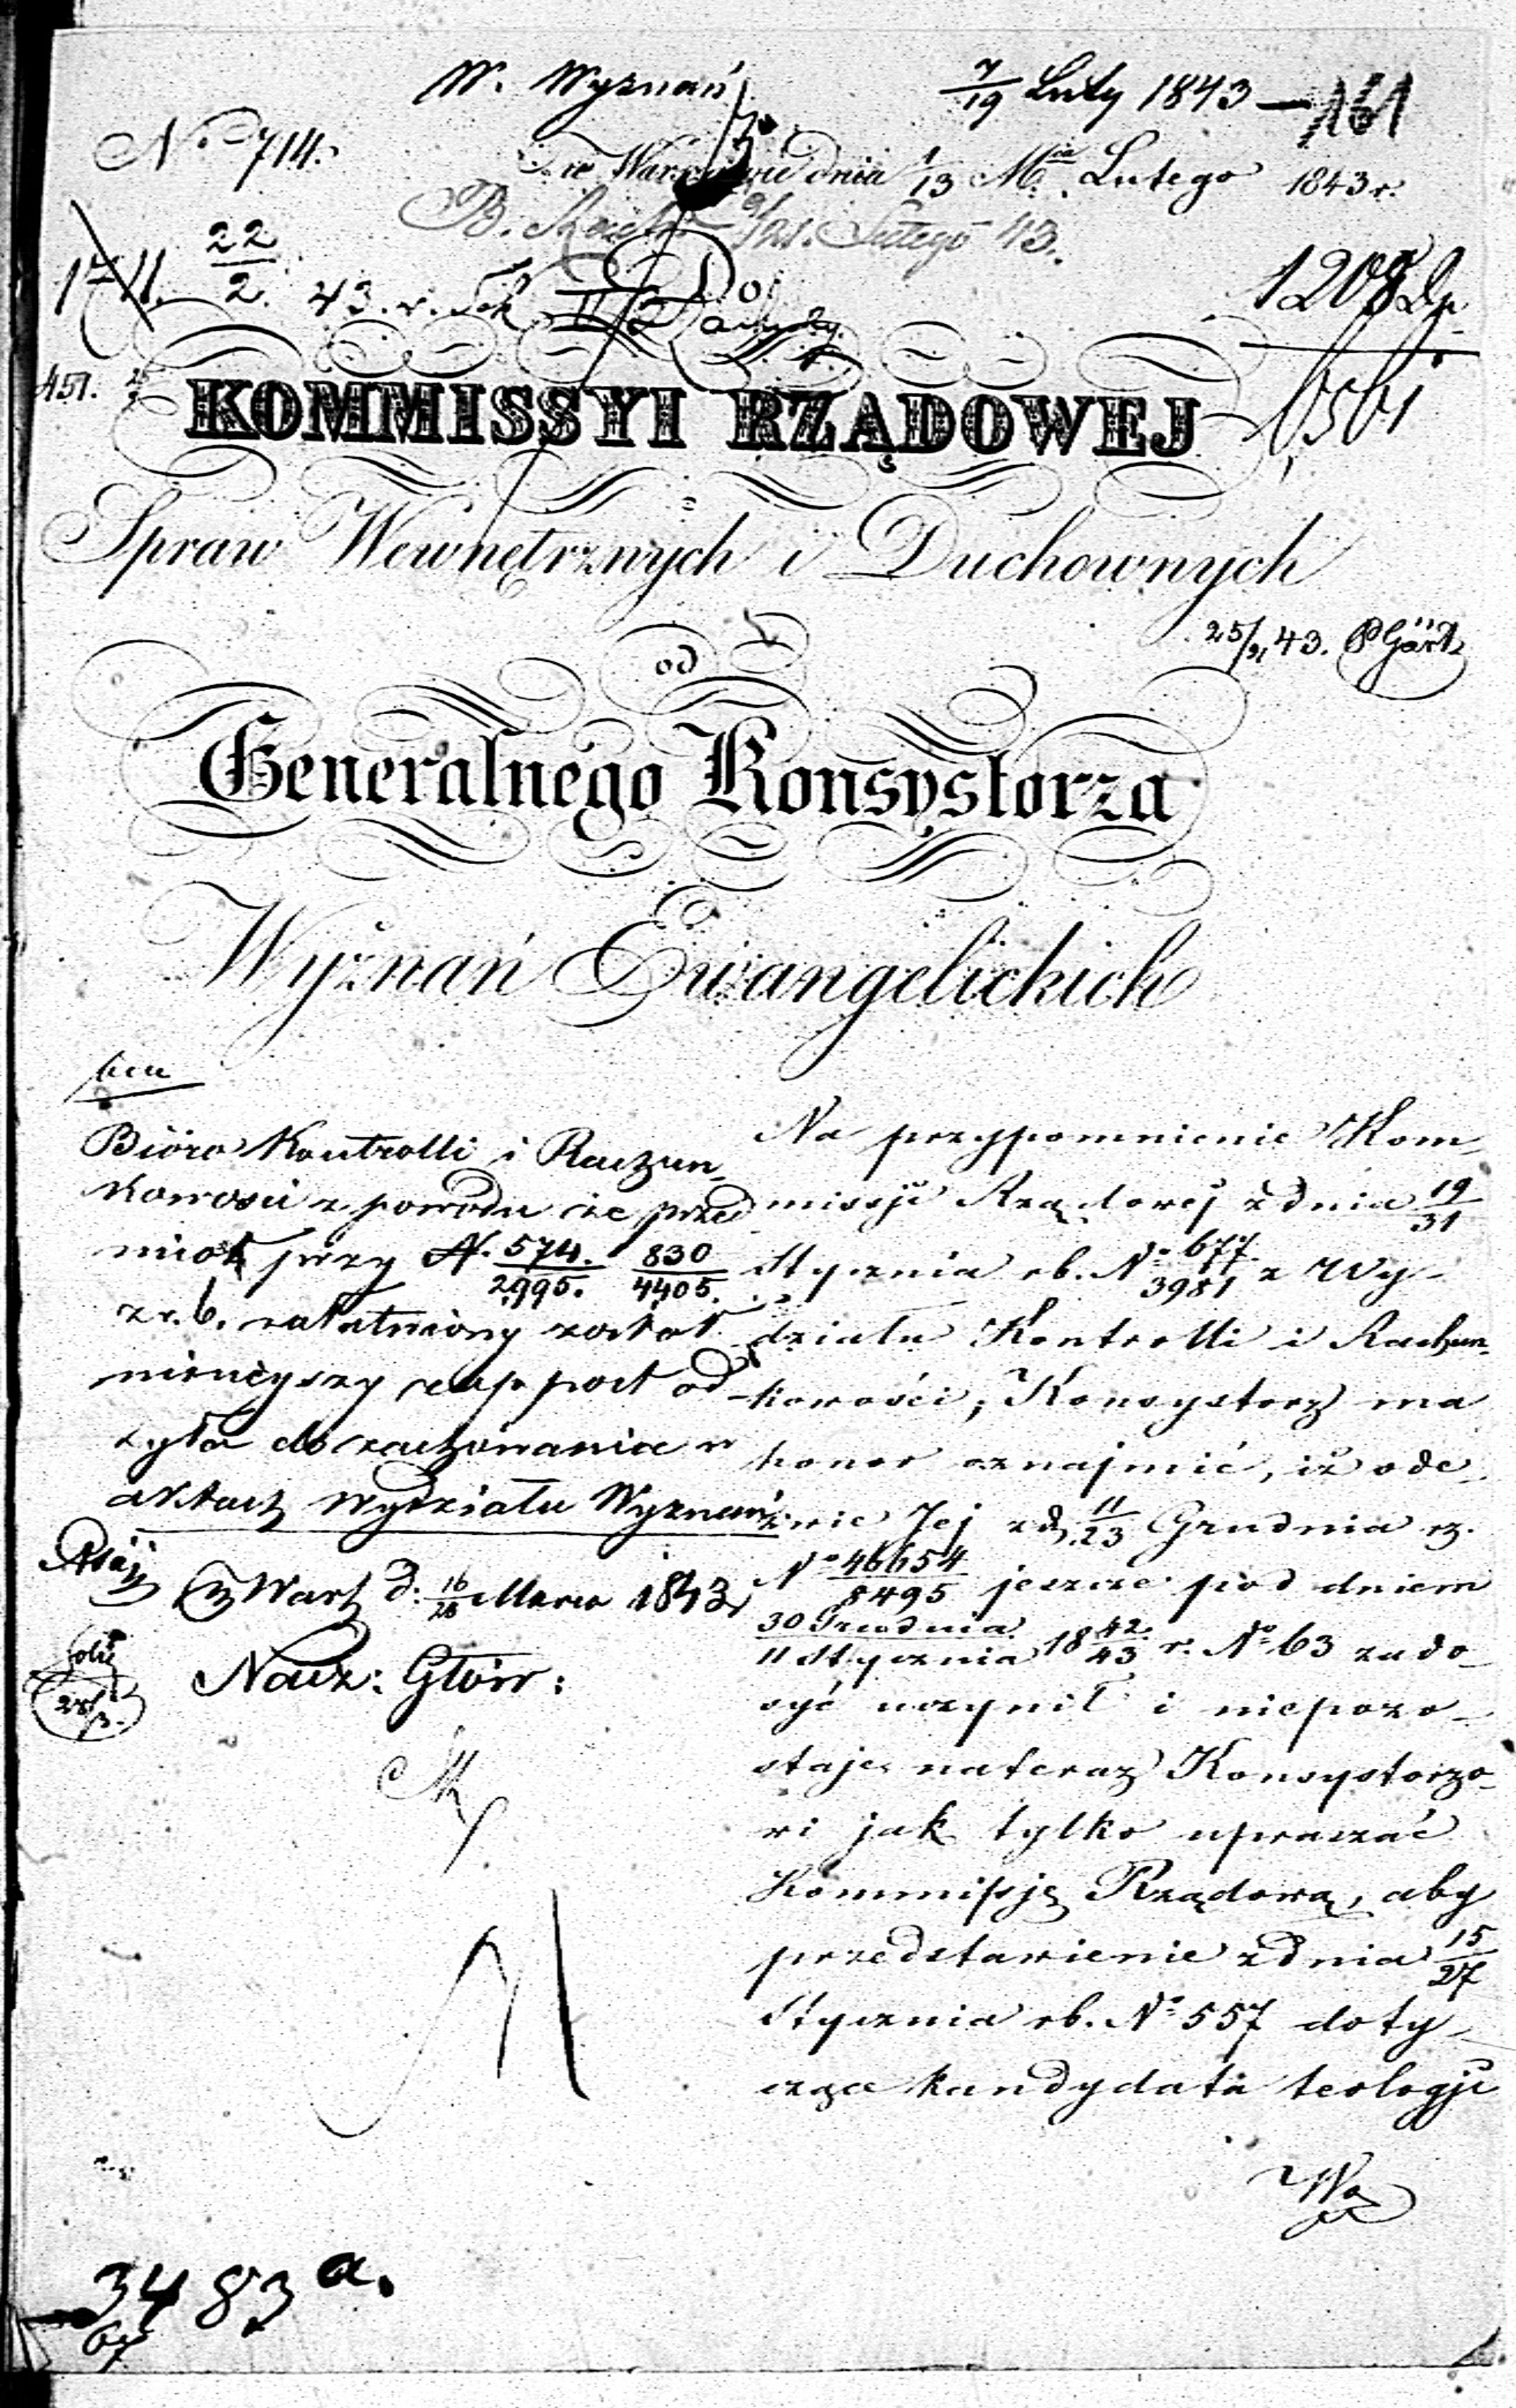 W. Wyznań
7/19 Luty 1843 — 161
No 714.
w Warszawie dnia 1/13 Mca Lutego 1843 r.
9/21. Lutego 43.
22/2. 43. r.
Do
1208
KOMMISSYI RZĄDOWEJ
Spraw Wewnętrznych i Duchownych
25/2 43.
od
Generalnego Konsystorza
Wyznań Ewangelickich
Biuro Kontrolli i Raczun-
kowości z powodu że przed
miot przy N. 574./2995. 830/4405.
z r. b. załatwiony został
ninieyszy rapport od
syła do zachowania w
aktach Wydziału Wyznań
w Warsz d: 16/28 Marca 1843
Nacz: Głów:
Na przypomnienie Kom-
missyi Rządowej z dnia 19/31
Stycznia rb. No 677/3981 z Wy-
działu Kontrolli i Rachun-
kowości, Konsystorz ma
honor oznajmić, iż ode-
zwie Jej z d. 11/23 Grudnia rz.
No 46654/8495 jeszcze pod dniem
30 Grudnia/11 Stycznia 18 42/43 r. No 63 zado-
syć uczynił i niepozo-
staje nateraz Konsystorzo-
wi jak tylko upraszać
Kommissję Rządową, aby
przedstawienie z dnia 15/27
Stycznia rb. No 557 doty-
czące kandydata teologji
3483 a.
67